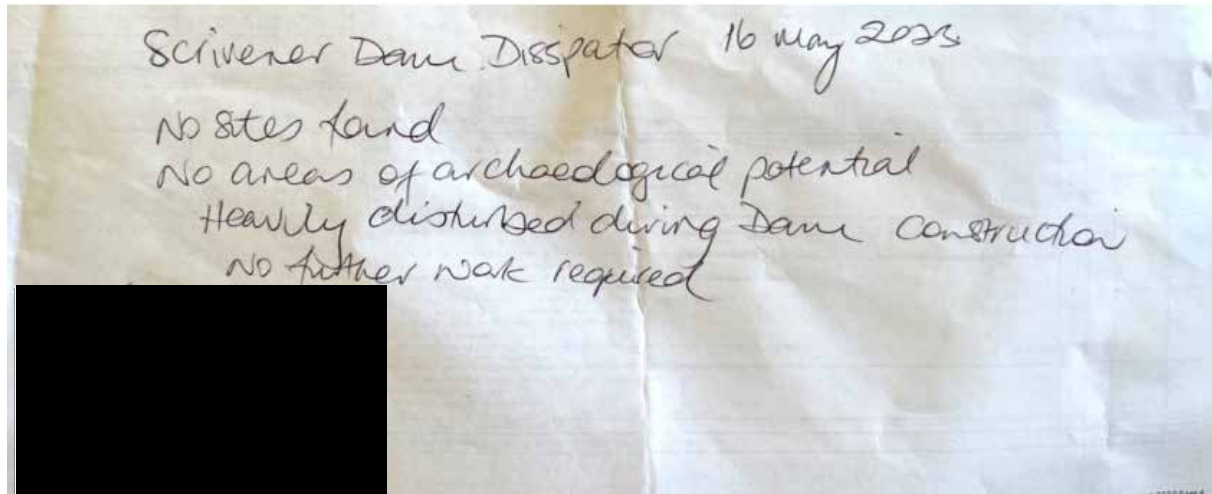 Scrivener Dam Dissipator 16 May 2023
No sites found
No areas of archaeological potential
Heavily disturbed during Dam construction
No further work required